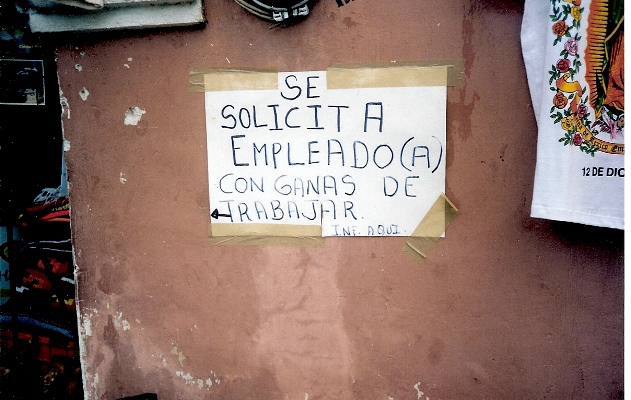 SE
SOLICITA
EMPLEADO(A)
CON GANAS DE
TRABAJAR.
INF. AQUI.
12 DE DIC